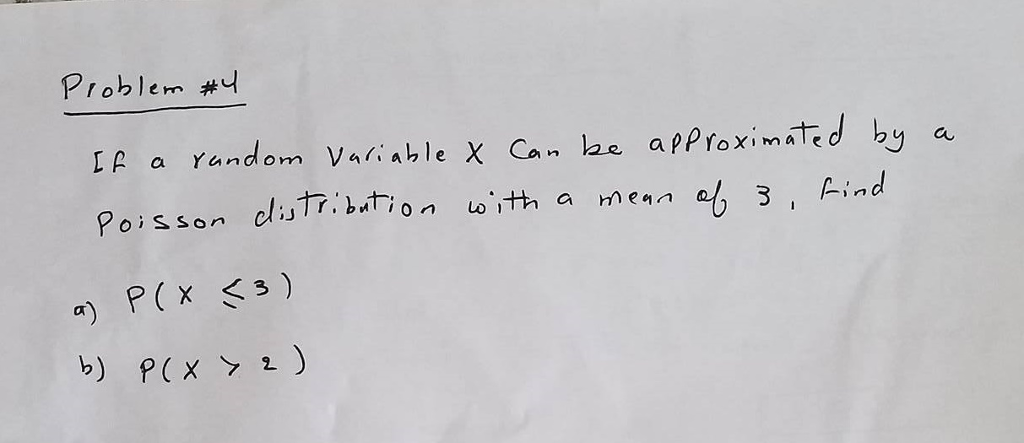 Problem #4
If a random Variable X Can be approximated by a
Poisson distribution with a mean of 3, find
a) P(X ≤ 3)
b) P(X > 2)